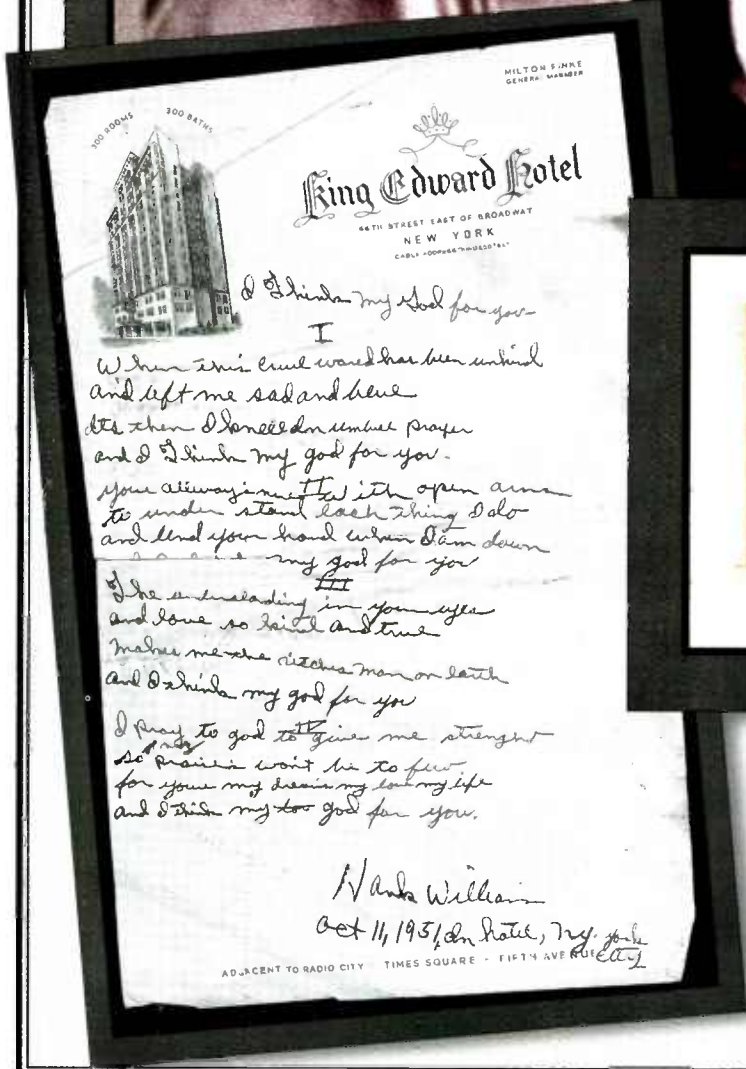 MILTON FINKE
GENERAL MANAGER
300 ROOMS 300 BATHS
King Edward Hotel
44TH STREET EAST OF BROADWAY
NEW YORK
CABLE ADDRESS
I Think my God for you
I
When this cruel world has been unkind
and left me sad and blue
Its then I kneel in umbul prayer
and I Think my god for you.
II
your allways with open arms
to under stand each thing I do
and lend your hand when I am down
my god for you
III
The understanding in your eyes
and love so kind and true
makes me the ritches man on earth
and I think my god for you
IV
I pray to god to give me strenght
so my prairies won't be to few
for youre my dream my love my life
and I think my god for you.
Hank Williams
Oct 11, 1951, in hotel, N.y. york
City
ADJACENT TO RADIO CITY - TIMES SQUARE - FIFTH AVENUE